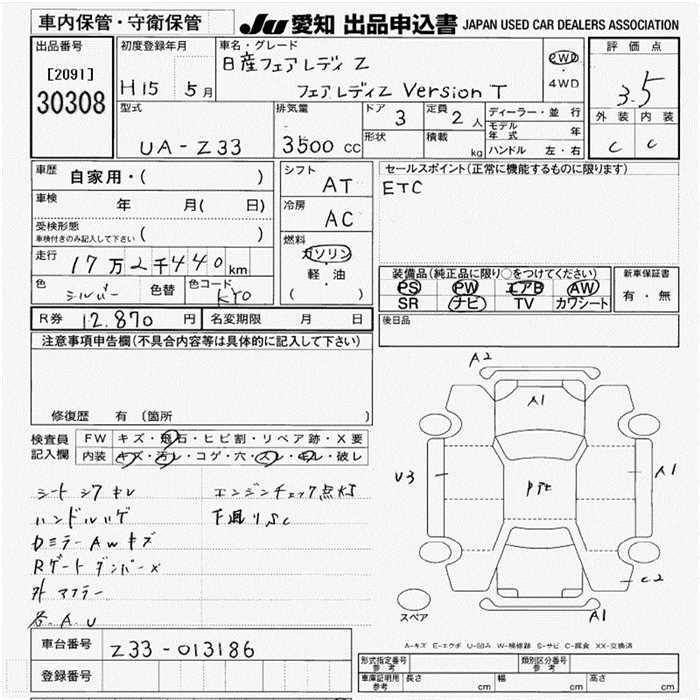 車内保管・守衛保管
JU 愛知 出品申込書 JAPAN USED CAR DEALERS ASSOCIATION
出品番号
[2091]
30308
初度登録年月
H15 5月
車名・グレード
日産フェアレディZ
フェアレディZ Version T
2WD
・
4WD
評価点
3.5
外装 内装
C C
型式
UA-Z33
排気量
3500 cc
ドア 3
形状
定員 2 人
積載 kg
ディーラー・並行
モデル年式 年
ハンドル 左・右
車歴 自家用・( )
車検 年 月( 日)
受検形態
車検付きのみ記入して下さい ( )
走行 17万2千440km
色 シルバー 色替 色コード KY0
シフト AT
冷房 AC
燃料
ガソリン
軽・油
( )
セールスポイント(正常に機能するものに限ります)
ETC
装備品(純正品に限り○をつけてください)
PS PW エアB AW
SR ナビ TV カワシート
新車保証書
有・無
後日品
R券 12,870 円 名変期限 月 日
注意事項申告欄(不具合内容等は具体的に記入して下さい)
修復歴 有 (箇所 )
検査員
記入欄
FW キズ・飛石・ヒビ割・リペア跡・X要
内装 キズ・汚レ・コゲ・穴・スレ・キレ・破レ
シートシワキレ エンジンチェック点灯
ハンドルハゲ 下廻りSC
Dミラー AWキズ
Rゲートダンパー×
外マフラー
各A.U
A2
A1
U3
A1
C2
A1
スペア
A-キズ E-エクボ U-凹み W-補修跡 S-サビ C-腐食 XX-交換済
車台番号 Z33-013186
登録番号
形式指定番号 参考
類別区分番号 参考
車庫証明用 参考 長さ cm 幅 cm 高さ cm